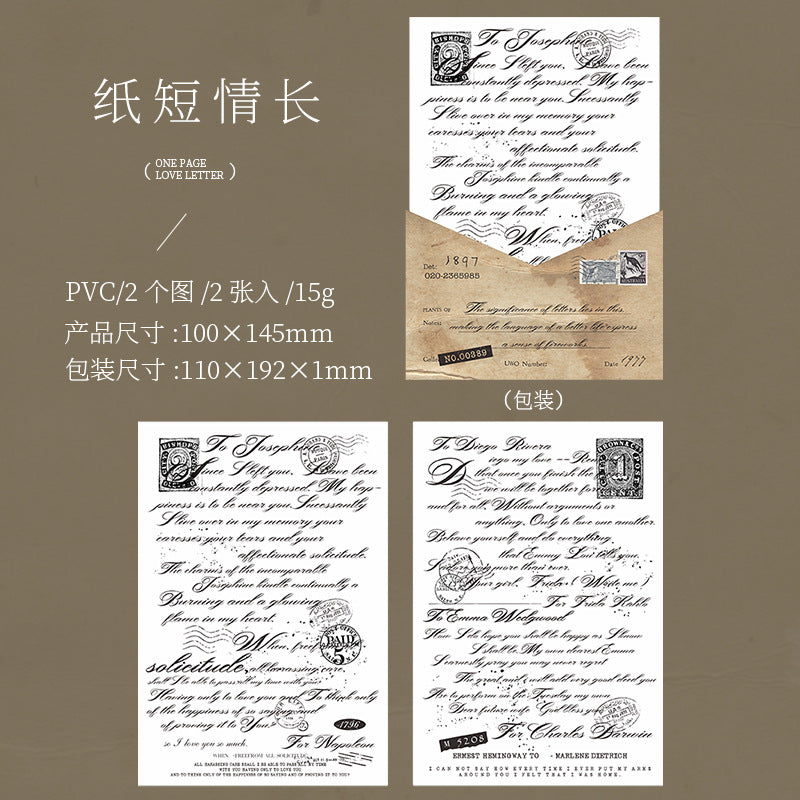 纸短情长
( ONE PAGE
LOVE LETTER )
PVC/2 个图 /2 张入 /15g
产品尺寸 :100×145mm
包装尺寸 :110×192×1mm
To Josephine
Since I left you, I have been
constantly depressed. My hap-
piness is to be near you. Sucessantly
I live over in my memory your
caresses your tears and your
affectionate solicitude.
The charms of the incomparable
Josephine kindle continually a
Burning and a glowing
flame in my heart.
When, free
Det: 1897
020-2365985
AUSTRALIA
PLANTS OF The significance of letters lies in this.
Notes: making the language of a letter life express
a sense of fireworks
NO.00389
UWO Number:
Date 1977
(包装)
To Josephine
Since I left you, I have been
constantly depressed. My hap-
piness is to be near you. Sucessantly
I live over in my memory your
caresses your tears and your
affectionate solicitude.
The charms of the incomparable
Josephine kindle continually a
Burning and a glowing
flame in my heart.
When, free
PAID
5
solicitude, all harassing care,
shall I be able to pass all my time with you?
Having only to love you and To think only
of the happiness of so saying and
of proving it to You?
1796
so I love you so much. For Napoleon
WHEN, FREE FROM ALL SOLICITUDE,
ALL HARASSING CARE SHALL I BE ABLE TO PASS ALL MY TIME
WITH YOU HAVING ONLY TO LOVE YOU
AND TO THINK ONLY OF THE HAPPINESS OF SO SAYING AND OF PROVING IT TO YOU?
To Diego Rivera
Diego my love ---Rem
that once you finish the
we will be together for
and for all. Without arguments or
anything, Only to love one another.
Behave yourself and do everything
that Emmy Lou tells you.
I adore you more than ever.
Your girl, Frida ( Write me )
For Frida Kahlo
1
To Emma Wedgwood
How I do hope you shall be happy as I know
I shall be. My own dearest Emma
I earnestly pray you may never regret
The great and I will add very good deed you
Are to perform on the Tuesday my own
Dear future wife God bless you
For Charles Darwin
M 5208
ERNEST HEMINGWAY TO - MARLENE DIETRICH
I CAN NOT SAY HOW EVERY TIME I EVER PUT MY ARMS
AROUND YOU I FELT THAT I WAS HOME.